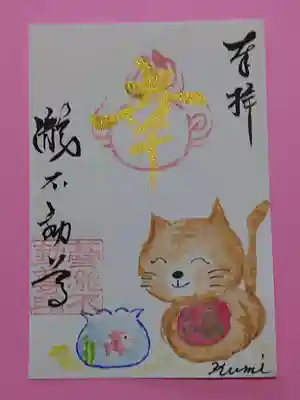 奉拝
幸
瀧不動尊
Kumi